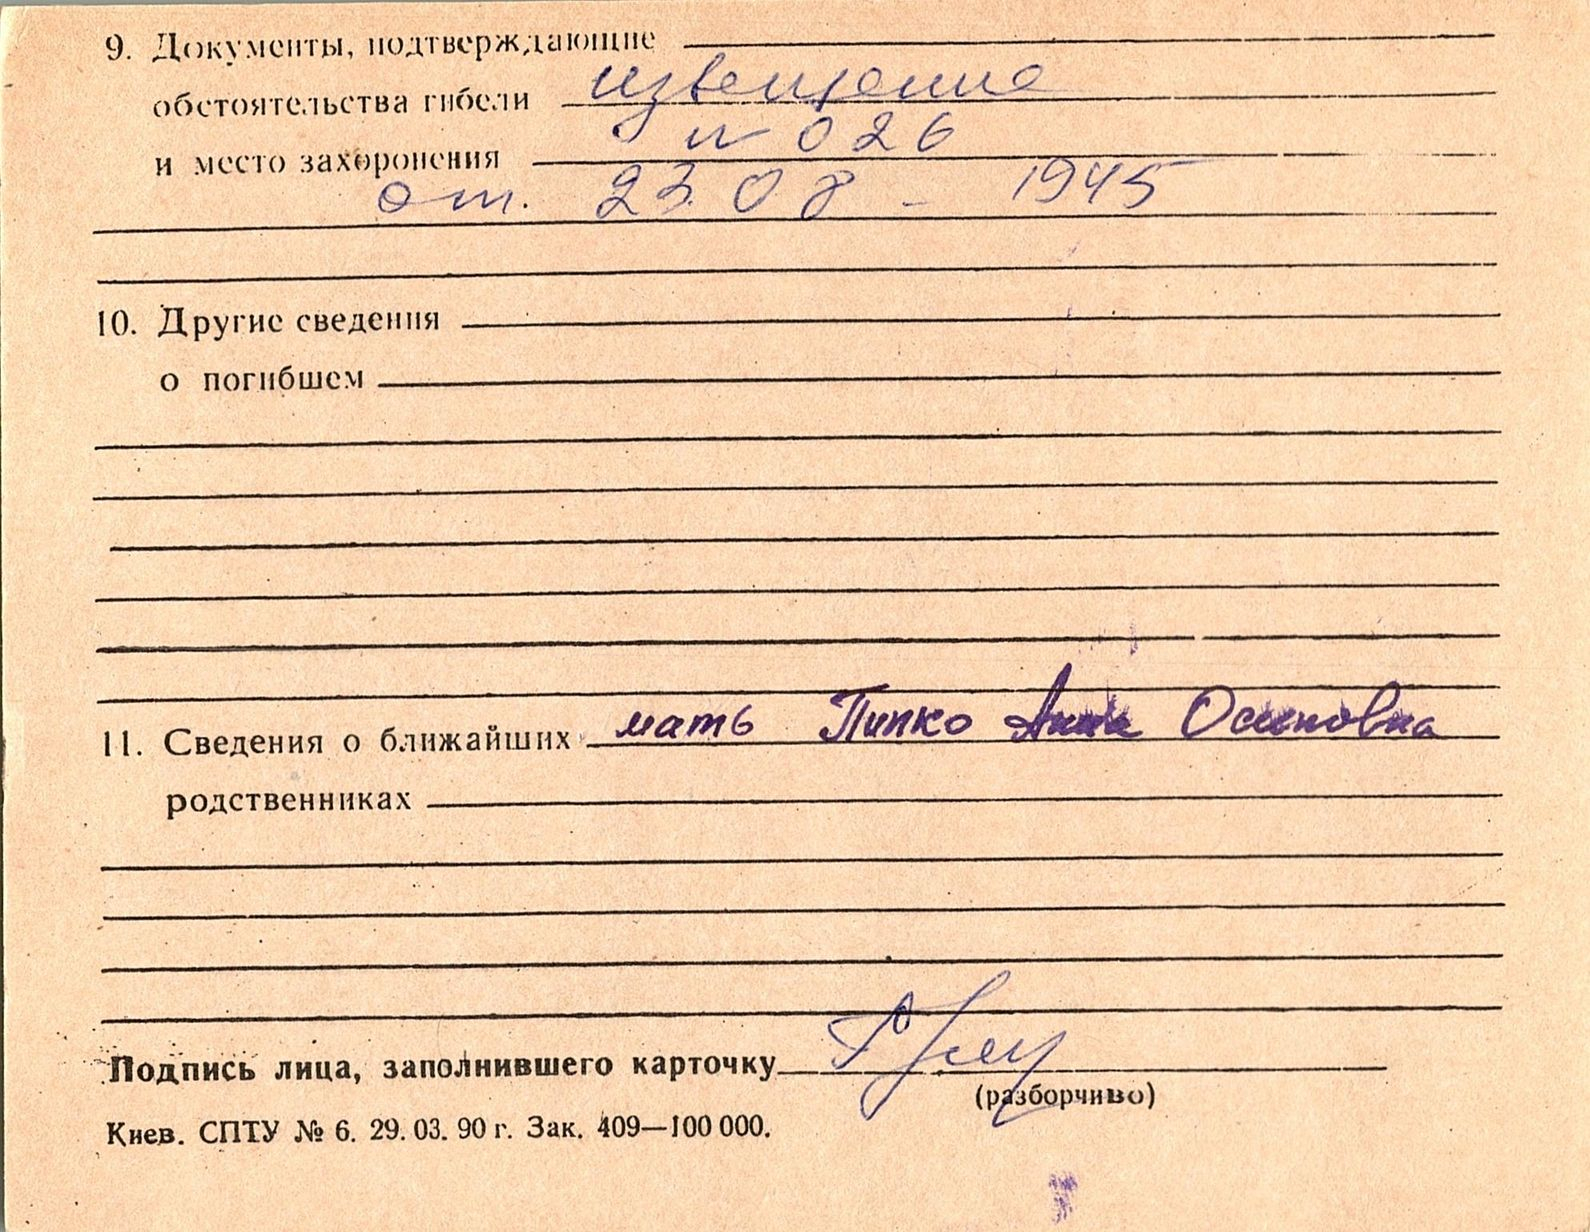 9. Документы, подтверждающие
обстоятельства гибели извещение
и место захоронения № 026
от. 23. 08 - 1945
10. Другие сведения
о погибшем
11. Сведения о ближайших мать Пипко Анна Осиповна
родственниках
Подпись лица, заполнившего карточку
(разборчиво)
Киев. СПТУ № 6. 29. 03. 90 г. Зак. 409—100 000.